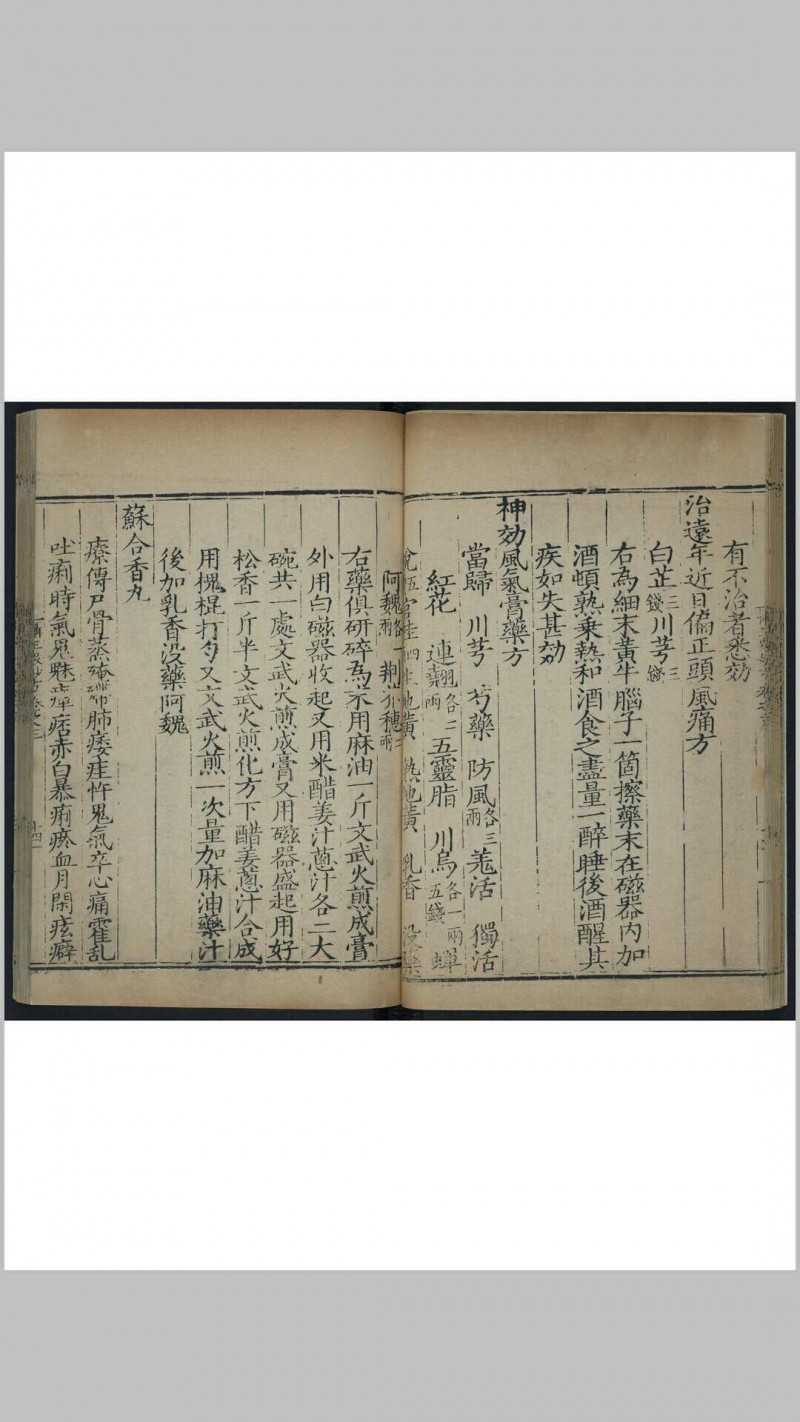 有不治者悉効
治遠年近日偏正頭風痛方
白芷三錢川芎三錢
右為細末黃牛腦子一箇擦藥末在磁器內加
酒頓熟乗熱和酒食之盡量一醉睡後酒醒其
疾如失甚効
神効風氣膏藥方
當歸 川芎 芍藥 防風各三兩羗活 獨活
紅花 連翹各二兩五靈脂 川烏各一兩五錢蟬
地黃 熟地黃 乳香 沒藥
阿魏各一兩荆芥穗
右藥俱研碎為末用麻油一斤文武火煎成膏
外用白磁器收起又用米醋姜汁蔥汁各二大
碗共一處文武火煎成膏又用磁器盛起用好
松香一斤半文武火煎化方下醋姜蔥汁合成
用槐棍打勻又文武火煎一次量加麻油藥汁
後加乳香沒藥阿魏
蘇合香丸
療傳尸骨蒸殗殜肺痿疰忤鬼氣卒心痛霍乱
吐痢時氣鬼魅瘴瘧赤白暴痢瘀血月閉痃癖